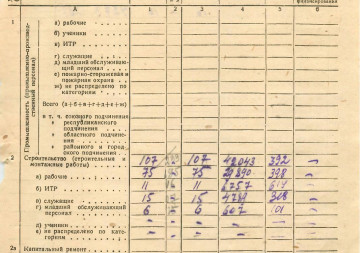 А 1 2 3 4 5 6
1 Промышленность (промышленно-производственный персонал)
а) рабочие
б) ученики
в) ИТР
г) служащие
д) младший обслуживающий персонал
е) пожарно-сторожевая и пожарная охрана
ж) не распределено по категориям
Всего (а+б+в+г+д+е+ж)
в т. ч. союзного подчинения
республиканского подчинения
областного подчинения
районного и городского подчинения
2 Строительство (строительные и монтажные работы) 107 107 392
а) рабочие 75 75 398
б) ИТР 11 11
в) служащие 15 15
г) младший обслуживающий персонал 6 6 607 101
д) ученики
е) не распределено по категориям
2а Капитальный ремонт